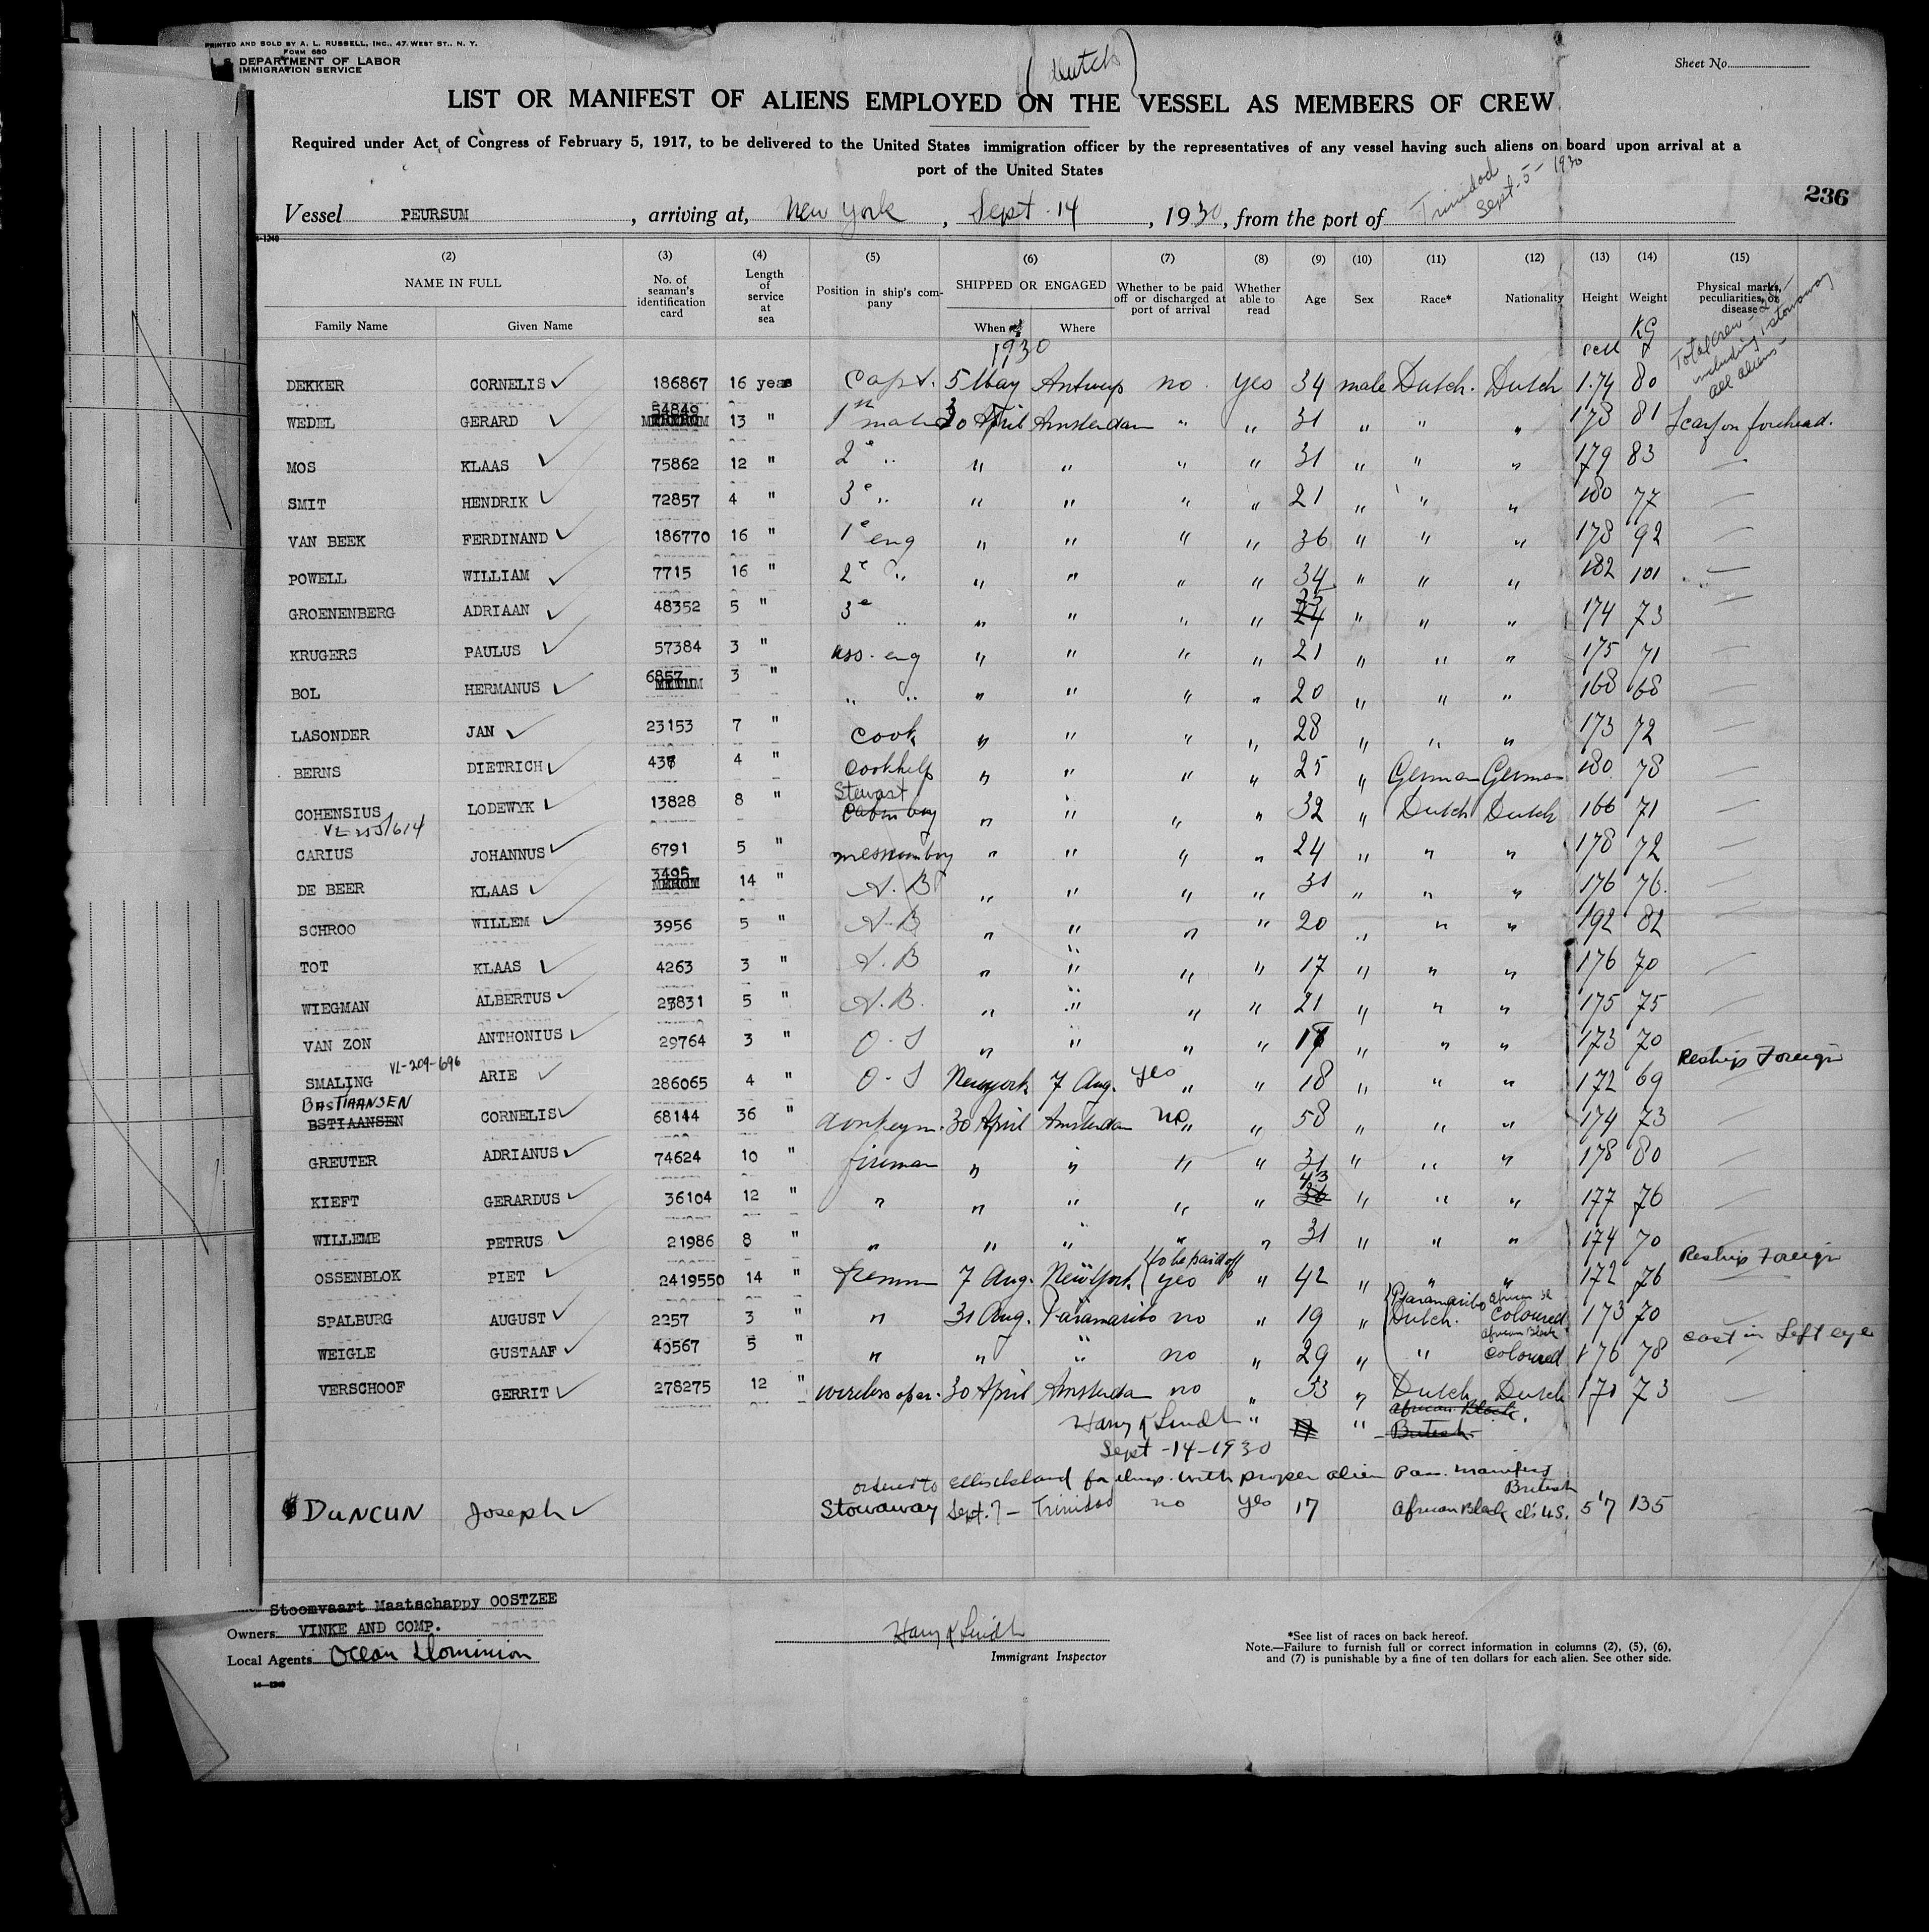 PRINTED AND SOLD BY A. L. RUSSELL, INC., 47 WEST ST., N. Y.
FORM 680
DEPARTMENT OF LABOR
IMMIGRATION SERVICE
(Dutch)
Sheet No.
LIST OR MANIFEST OF ALIENS EMPLOYED ON THE VESSEL AS MEMBERS OF CREW
Required under Act of Congress of February 5, 1917, to be delivered to the United States immigration officer by the representatives of any vessel having such aliens on board upon arrival at a
port of the United States
236
Vessel PEURSUM, arriving at, New York, Sept. 14, 1930, from the port of Trinidad Sept-5-1930
(2) (3) (4) (5) (6) (7) (8) (9) (10) (11) (12) (13) (14) (15)
NAME IN FULL No. of seaman's identification card Length of service at sea Position in ship's company SHIPPED OR ENGAGED Whether to be paid off or discharged at port of arrival Whether able to read Age Sex Race* Nationality Height Weight Physical marks, peculiarities, or disease
Family Name Given Name When Where
1930 KG
Total crew - 28 - including 1 stowaway all aliens-
DEKKER CORNELIS ✓ 186867 16 years Capt. 5 May Antwerp no. yes 34 male Dutch. Dutch 1.74 80
WEDEL GERARD ✓ 54849 13 " 1st mate 30 April Amsterdam " " 31 " " " 178 81 Scar on forehead.
MOS KLAAS ✓ 75862 12 " 2e " " " " " 31 " " " 179 83 —
SMIT HENDRIK ✓ 72857 4 " 3e " " " " " 21 " " " 180 77 —
VAN BEEK FERDINAND ✓ 186770 16 " 1e eng " " " " 36 " " " 178 92 —
POWELL WILLIAM ✓ 7715 16 " 2e " " " " " 34 " " " 182 101 —
GROENENBERG ADRIAAN ✓ 48352 5 " 3e " " " " " " " " 174 73 —
KRUGERS PAULUS ✓ 57384 3 " ass. eng " " " " 21 " " " 175 71 —
BOL HERMANUS ✓ 6857 3 " " " " " " " 20 " " " 168 68 —
LASONDER JAN ✓ 23153 7 " cook " " " " 28 " " " 173 72 —
BERNS DIETRICH ✓ 437 4 " cookhelp " " " " 25 " German German 180 78 —
COHENSIUS LODEWYK ✓ 13828 8 " Stewart Cabin boy " " " " 32 " Dutch Dutch 166 71 —
CARIUS JOHANNUS ✓ 6791 5 " messroomboy " " " " 24 " " " 178 72 —
DE BEER KLAAS ✓ 3495 14 " A. B " " " " 31 " " " 176 76. —
SCHROO WILLEM ✓ 3956 5 " A. B " " " " 20 " " " 192 82 —
TOT KLAAS ✓ 4263 3 " A. B " " " " 17 " " " 176 70 —
WIEGMAN ALBERTUS ✓ 23831 5 " A. B. " " " " 21 " " " 175 75 —
VAN ZON ANTHONIUS ✓ 29764 3 " O. S " " " " " " " 173 70 —
VL-209-696
SMALING ARIE ✓ 286065 4 " O. S New york 7 Aug. yes " 18 " " " 172 69 Reship Foreign
BASTIAANSEN
BSTIAANSEN CORNELIS ✓ 68144 36 " donkeym. 30 April Amsterdam no " 58 " " " 174 73 —
GREUTER ADRIANUS ✓ 74624 10 " fireman " " " " 31 " " " 178 80 —
KIEFT GERARDUS ✓ 36104 12 " " " " " " 43 " " " 177 76 —
WILLEME PETRUS ✓ 21986 8 " " " " " " 31 " " " 174 70
OSSENBLOK PIET ✓ 2419550 14 " firemn 7 Aug. New York (to be paid off yes " 42 " " " 172 76 Reship Foreign
SPALBURG AUGUST ✓ 2257 3 " " 31 Aug. Paramaribo no " 19 " Paramaribo Dutch. African Bl Coloured 173 70
WEIGLE GUSTAAF ✓ 40567 5 " " " " no " 29 " " African Black coloured 176 78 cast in Left eye
VERSCHOOF GERRIT ✓ 278275 12 " wireless oper. 30 April Amsterdam no " 33 " Dutch Dutch 170 73 —
Harry K Lindh " " African Black British
Sept-14-1930
ordered to Ellis Island for insp. with proper alien Pass. manifest
DUNCUN Joseph ✓ Stowaway Sept. 7 - Trinidad no yes 17 African Black British 5'7 135
Stoomvaart Maatschappy OOSTZEE
Owners VINKE AND COMP.
Local Agents Ocean Dominion
Harry K Lindh
Immigrant Inspector
*See list of races on back hereof.
Note.—Failure to furnish full or correct information in columns (2), (5), (6),
and (7) is punishable by a fine of ten dollars for each alien. See other side.
14—1240